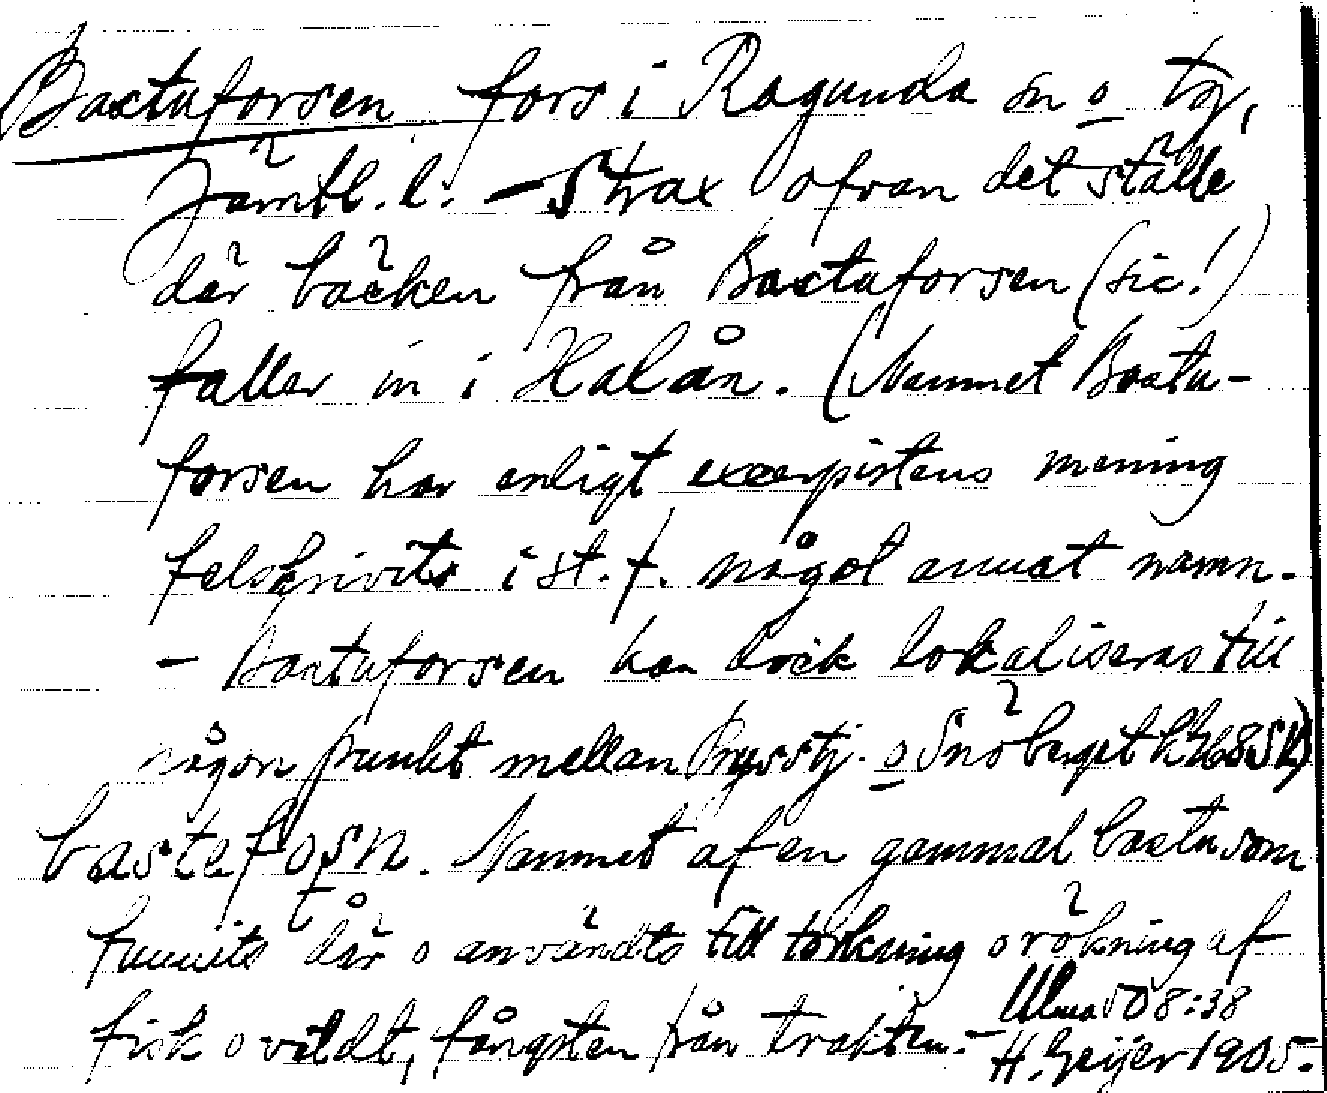 Bastuforsen fors i Ragunda sn o tg,
Jämtl. l. - Strax ofvan det ställe
där bäcken från Bastuforsen (sic!)
faller in i Halån. (Namnet Bastu-
forsen har enligt excerpistens mening
felskrivits i st. f. något annat namn.
- Bastuforsen kan dock lokaliseras till
någon punkt mellan o Snöberget
bastefosn. Namnet af en gammal bastu som
funnits där o användts till torkning o rökning af
fisk o vildt, fångsten från trakten. -
Ulma 508:38
H. Geijer 1905.